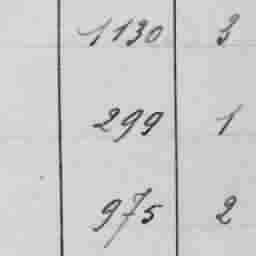 1130 3
299 1
975 2